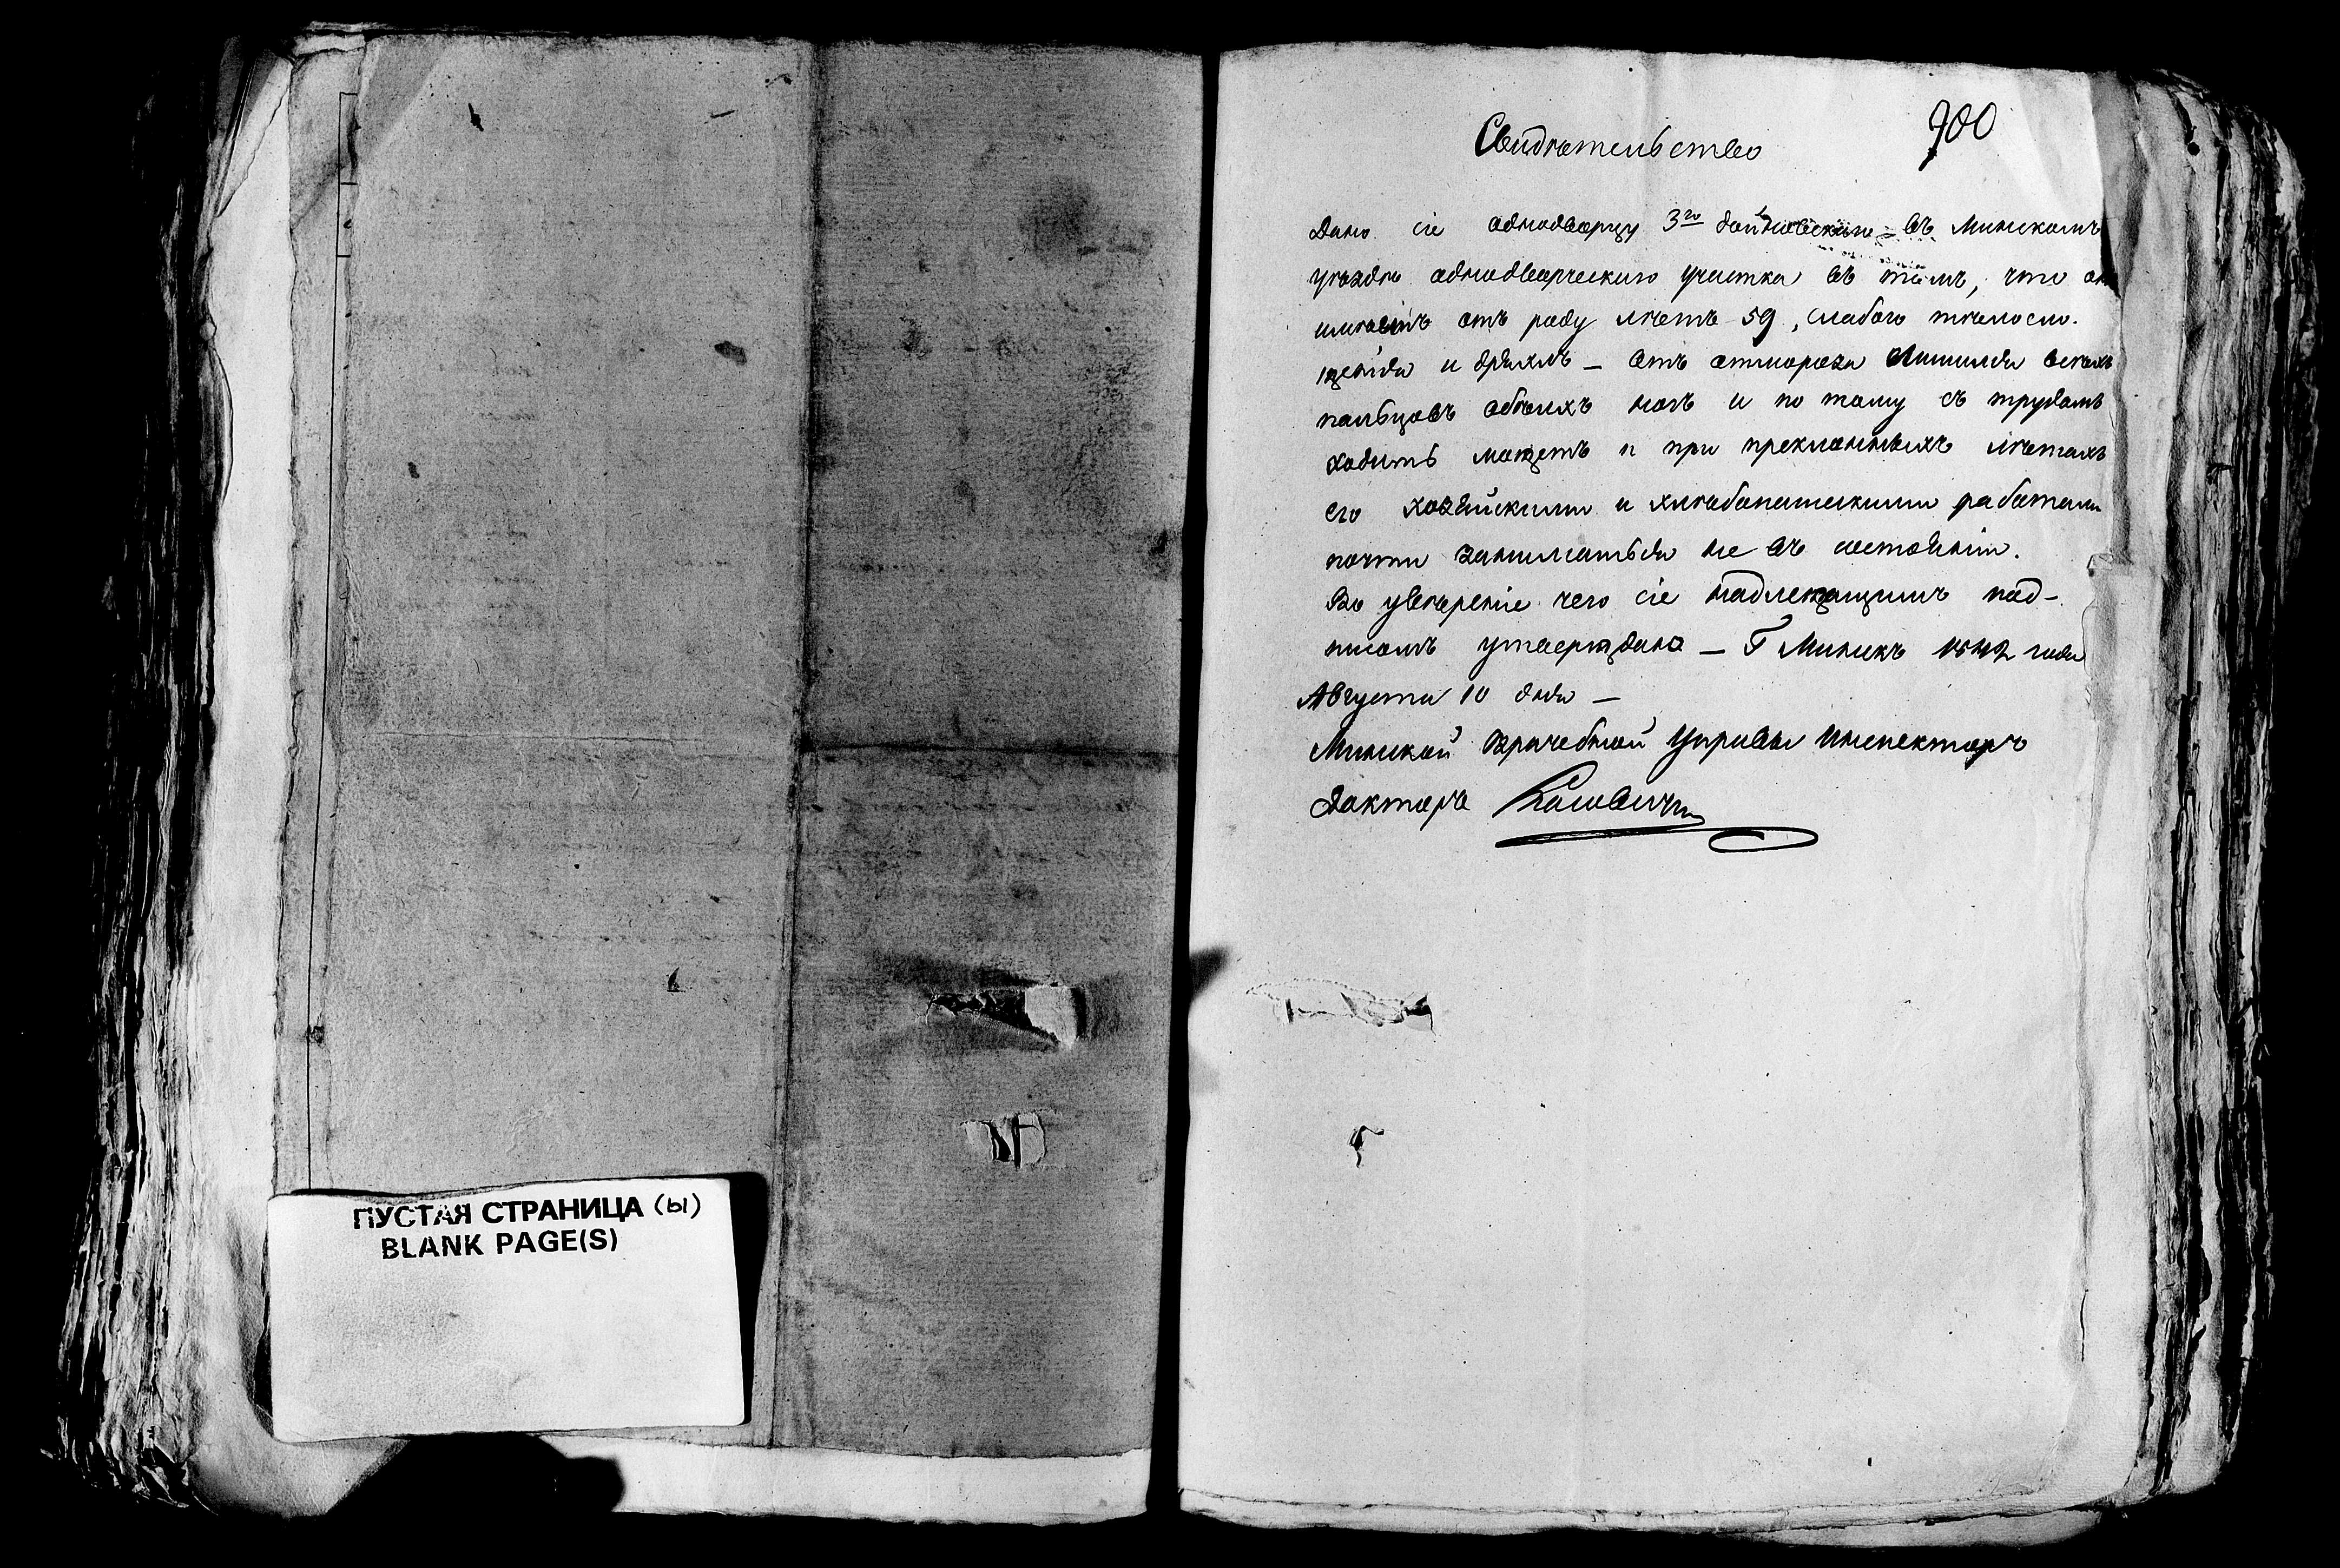 ПУСТАЯ СТРАНИЦА (ы)
BLANK PAGE(S)
900
Свидѣтельство
Дано сіе однодворцу 3го Дайновскаго въ Минскомъ
уѣздѣ однодворческаго участка въ томъ, что онъ
имѣетъ отъ роду лѣтъ 59, слабаго тѣлосло-
женія и дряхлъ — отъ отмороза лишился всѣхъ
пальцовъ обѣихъ ногъ и по тому съ трудомъ
ходить можетъ и при преклонныхъ лѣтахъ
его хозяйскими и хлѣбопашескими работами
почти заниматься не въ состояніи.
Во увѣреніе чего сіе надлежащимъ под-
писомъ утверждено — Г Минскъ 1842 года
Августа 10 дня —
Минской Врачебной Управы Инспекторъ
Докторъ